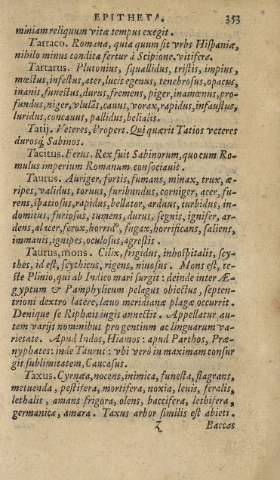 EPITHETA. 353
miniam reliquum vitæ tempus exegit.
Tarraco. Romana, quia quum sit vrbs Hispaniæ,
nihilo minus condita fertur à Scipione, vitifera.
Tartarus. Plutonius, squallidus, tristis, impius,
mœstus, infestus, ater, lucis egenus, tenebrosus, opacus,
inanis, funestus, durus, fremens, piger, inamœnus, pro-
fundus, niger, vlulās, cauus, vorax, rapidus, infaustus,
luridus, concauus, pallidus, bestialis.
Tatij. Veteres, Propert. Qui quærit Tatios veteres
durosq́ Sabinos.
Tacitus. Ferus. Rex fuit Sabinorum, quo cum Ro-
mulus imperium Romanum consociauit.
Taurus. Auriger, fortis, fumans, minax, trux, æ-
ripes, validus, toruus, furibundus, corniger, acer, fu-
rens, spatiosus, rapidus, bellator, arduus, turbidus, in-
domitus, furiosus, tumens, durus, segnis, ignifer, ar-
dens, alacer, ferox, horridꝰ, fugax, horrificans, saliens,
immanis, ignipes, oculosus, agrestis.
Taurus, mons. Cilix, frigidus, inhospitalis, Scy-
thes, id est, scythicus, rigens, niuosus. Mons est, te-
ste Plinio, qui ab Indico mari surgit: deinde inter Æ-
gyptum & Pamphylicum pelagus obiectus, septen-
trioni dextro latere, læuo meridianæ plagæ occurrit.
Denique se Riphæis iugis annectit. Appellatur au-
tem varijs nominibus pro gentium ac linguarum va-
rietate. Apud Indos, Hiamos: apud Parthos, Præ-
nyphates: inde Taurus: vbi verò in maximam consur
git sublimitatem, Caucasus.
Taxus. Cyrnæa, nocens, inimica, funesta, flagrans,
metuenda, pestifera, mortifera, noxia, leuis, feralis,
lethalis, amans frigora, olens, baccifera, lethifera,
germanica, amara. Taxus arbor similis est abieti.
Z Baccas